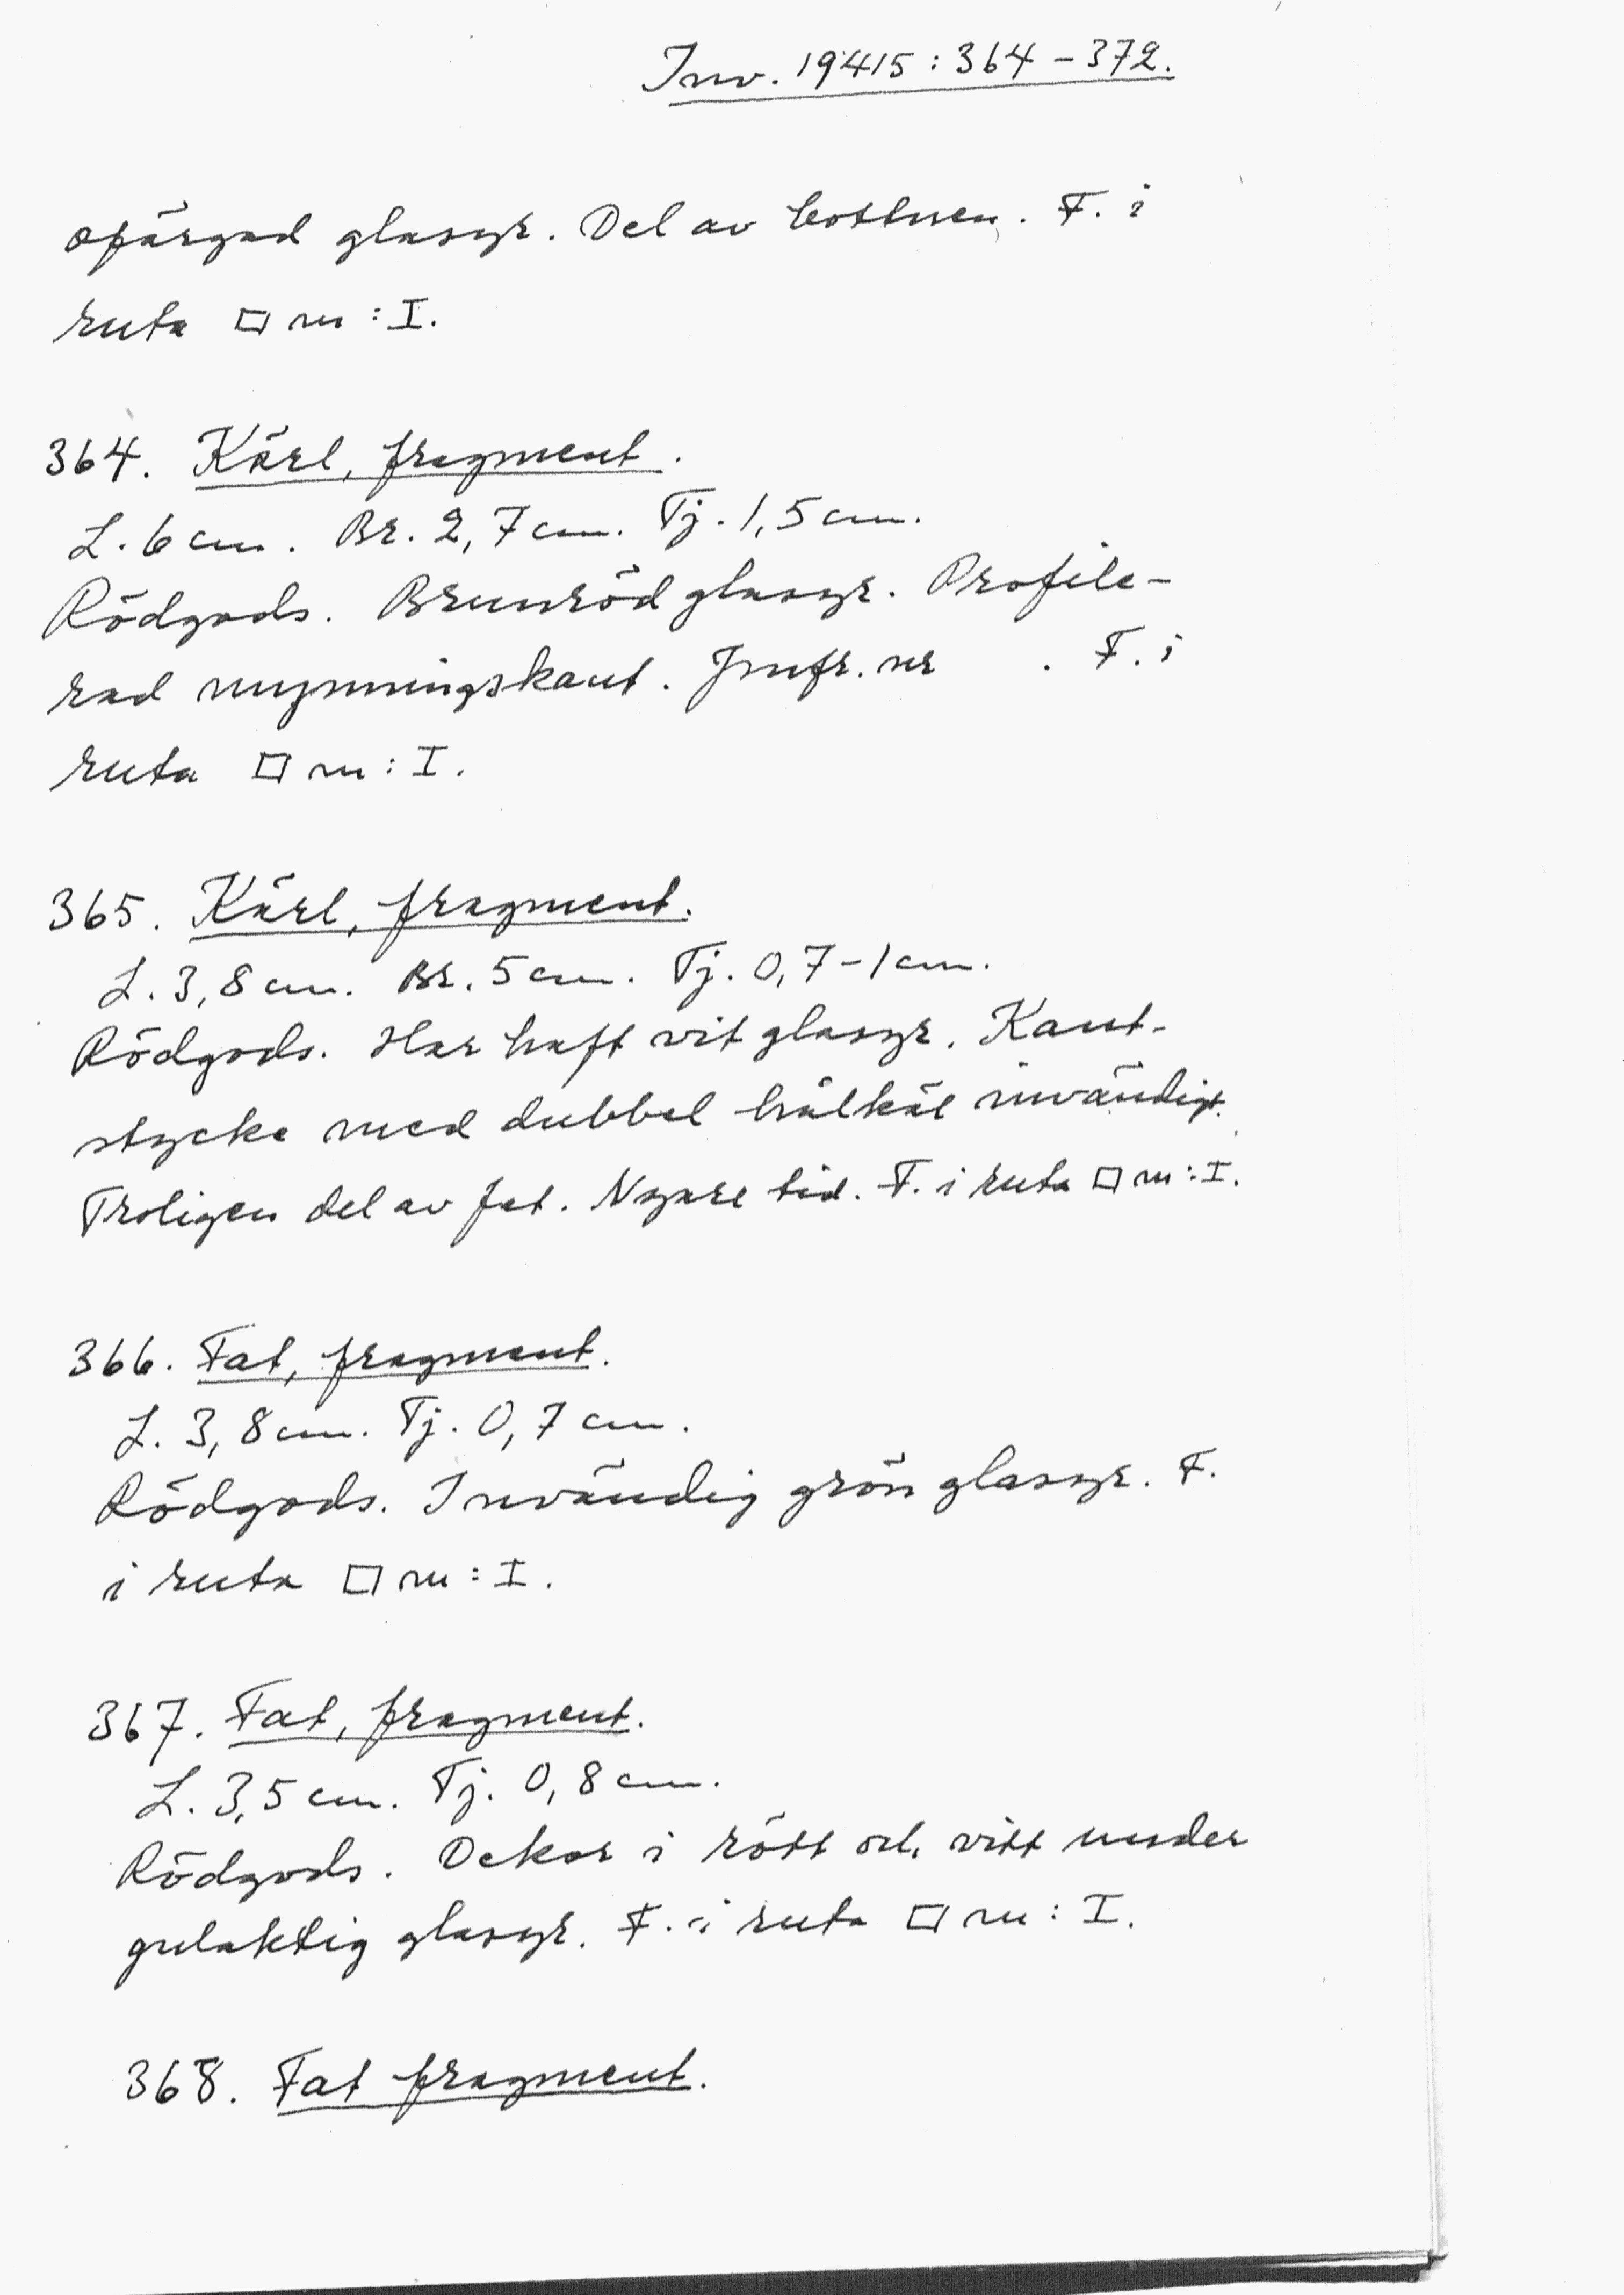 Inv. 19415:364-372.
ofärgad glasyr. Del av bottnen. F. i
ruta □ m:I.
364. Kärl, fragment.
L. 6 cm. Br. 2,7 cm. Tj. 1,5 cm.
Rödgods. Brunröd glasyr. Profile-
rad mynningskant. Jmfr. nr . F. i
ruta □ m:I.
365. Kärl, fragment.
L. 3,8 cm. Br. 5 cm. Tj. 0,7-1 cm.
Rödgods. Har haft vit glasyr. Kant-
stycke med dubbel hålkäl invändigt.
Troligen del av fat. Nyare tid. F. i ruta □ m:I.
366. Fat, fragment.
L. 3,8 cm. Tj. 0,7 cm.
Rödgods. Invändig grön glasyr. F.
i ruta □ m:I.
367. Fat, fragment.
L. 3,5 cm. Tj. 0,8 cm.
Rödgods. Dekor i rött och vitt under
gulaktig glasyr. F. i ruta □ m:I.
368. Fat fragment.